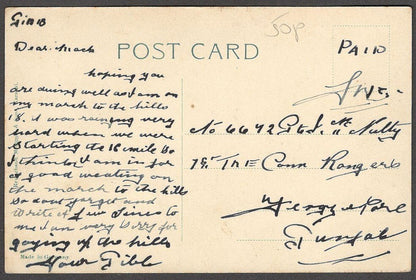 50p
Dear Mack
POST CARD
PAID
hoping you
are doing well as I am on
my march to the hills
it was raining very
hard when we were
starting the 16 mile so
I think I am in for
a good weating on
the march to the hills
so dont forget and
write a few lines to
me I am very sorry for
going up the hills
Your
No 6642 Pte
Nutty
1st The Conn Rangers
Made in Germany